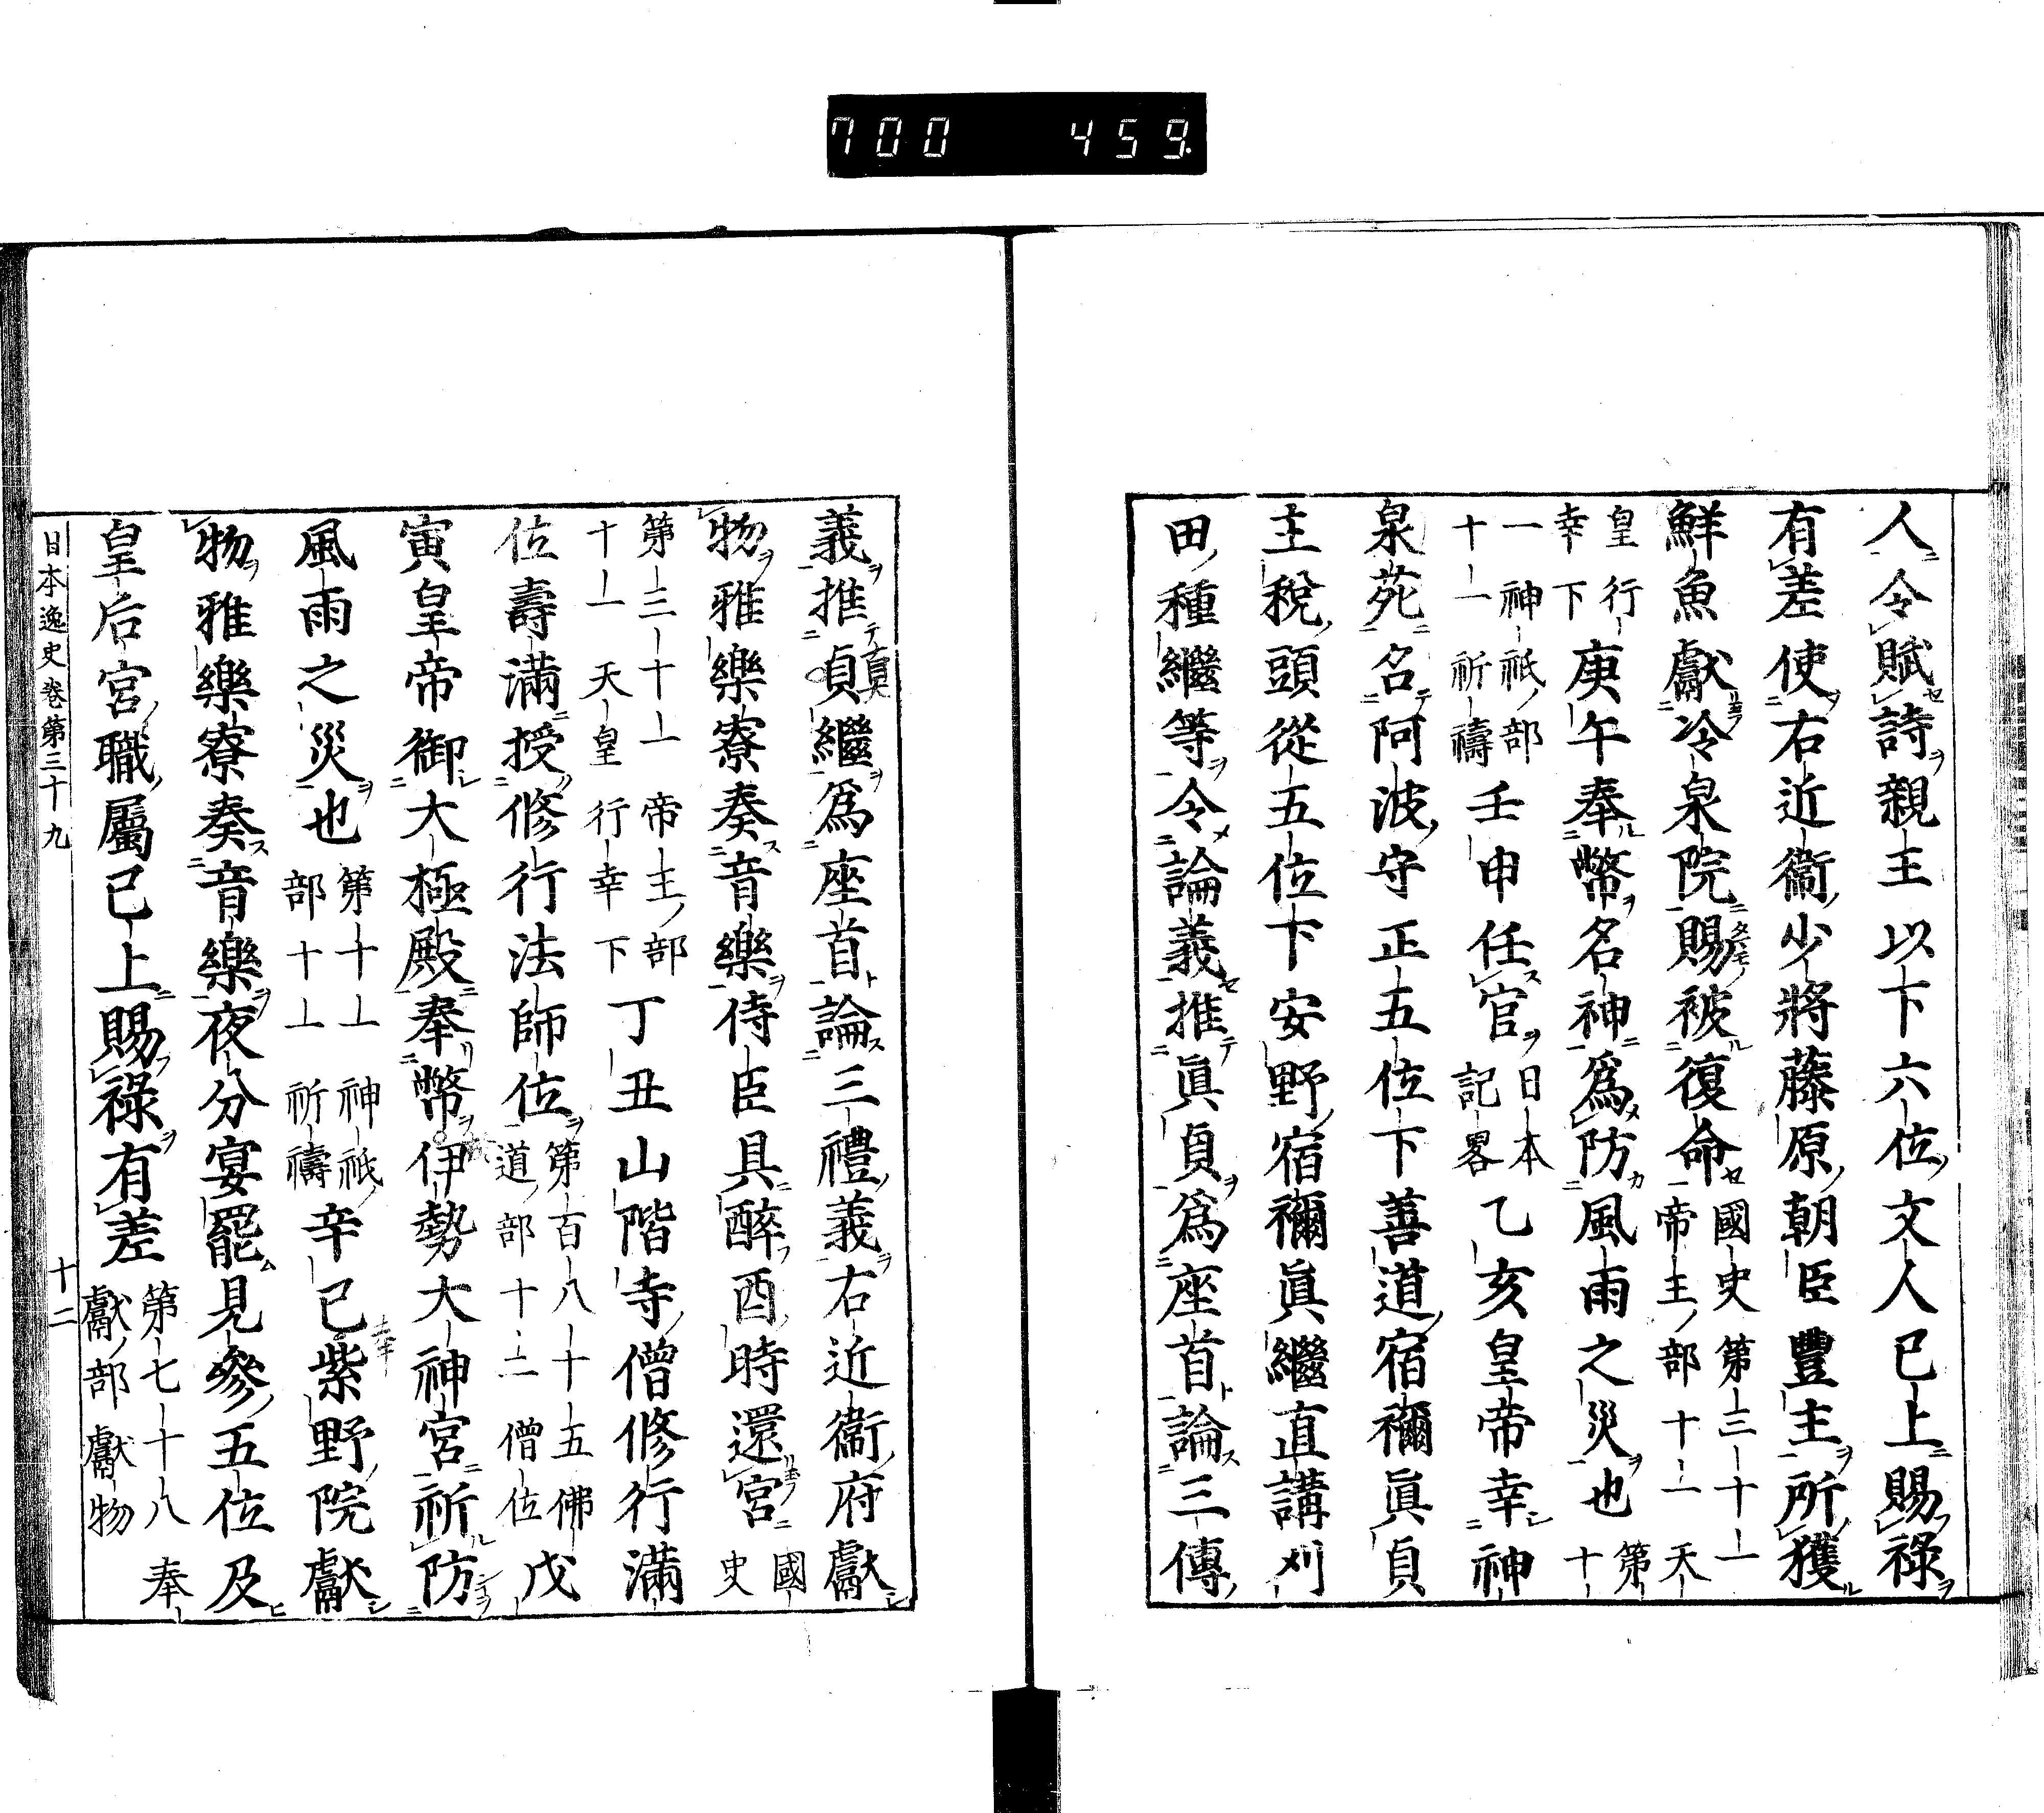 700 459.
人令賦詩親王以下六位文人已上賜祿
有差使右近衞少將藤原朝臣豐主所獲
鮮魚獻冷泉院賜被復命國史第三十一帝王部十一天
皇行幸下庚午奉幣名神爲防風雨之災也第十
一神祇部十一祈禱壬申任官日本記畧乙亥皇帝幸神
泉苑名阿波守正五位下善道宿禰眞貞
主稅頭從五位下安野宿禰眞繼直講刈
田種繼等令論義推眞貞爲座首論三傳
義推貞繼爲座首論三禮義右近衞府獻
眞
物雅樂寮奏音樂侍臣具醉酉時還宮國史
第三十一帝王部十一天皇行幸下丁丑山階寺僧修行滿
位壽滿授修行法師位第百八十五佛道部十二僧位戊
寅皇帝御大極殿奉幣伊勢大神宮祈防
風雨之災也第十一神祇部十一祈禱辛已紫野院獻
幸
物雅樂寮奏音樂夜分宴罷見參五位及
皇后宮職屬已上賜祿有差第七十八奉獻部獻物
日本逸史卷第三十九 十二